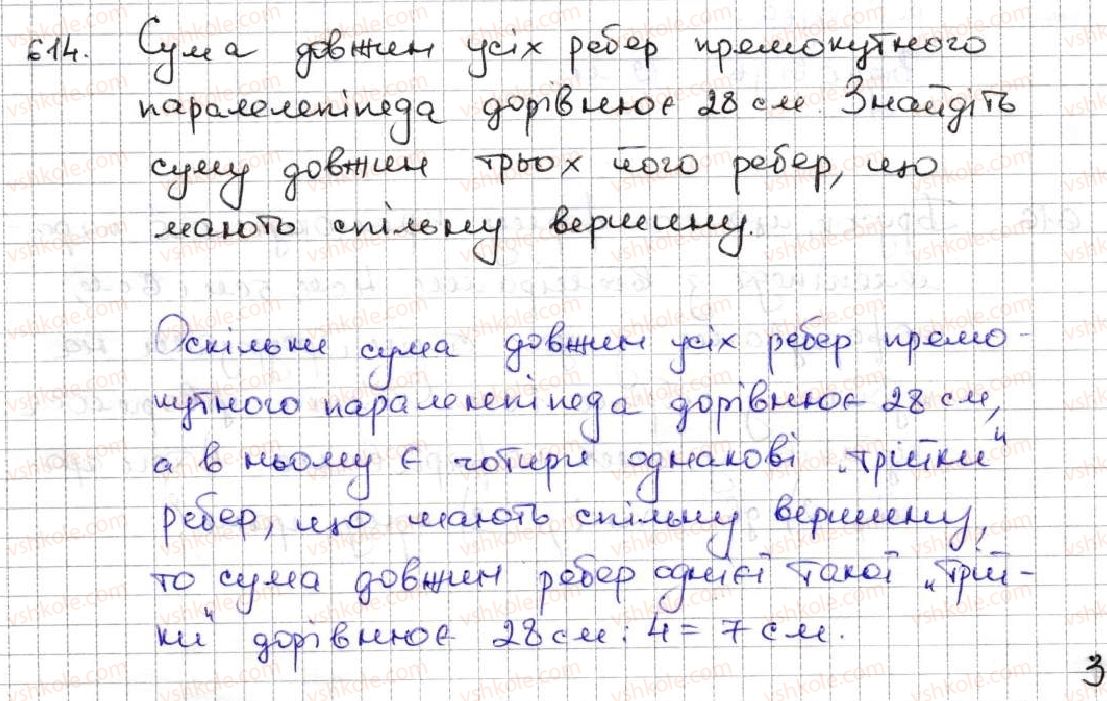 614. Сума довжин усіх ребер прямокутного
паралелепіпеда дорівнює 28 см. Знайдіть
суму довжин трьох його ребер, що
мають спільну вершину.
Оскільки сума довжин усіх ребер прямо-
кутного паралелепіпеда дорівнює 28 см,
а в ньому є чотири однакові „трійки"
ребер, що мають спільну вершину,
то сума довжин ребер однієї такої „трій-
ки" дорівнює 28 см : 4 = 7 см.
3